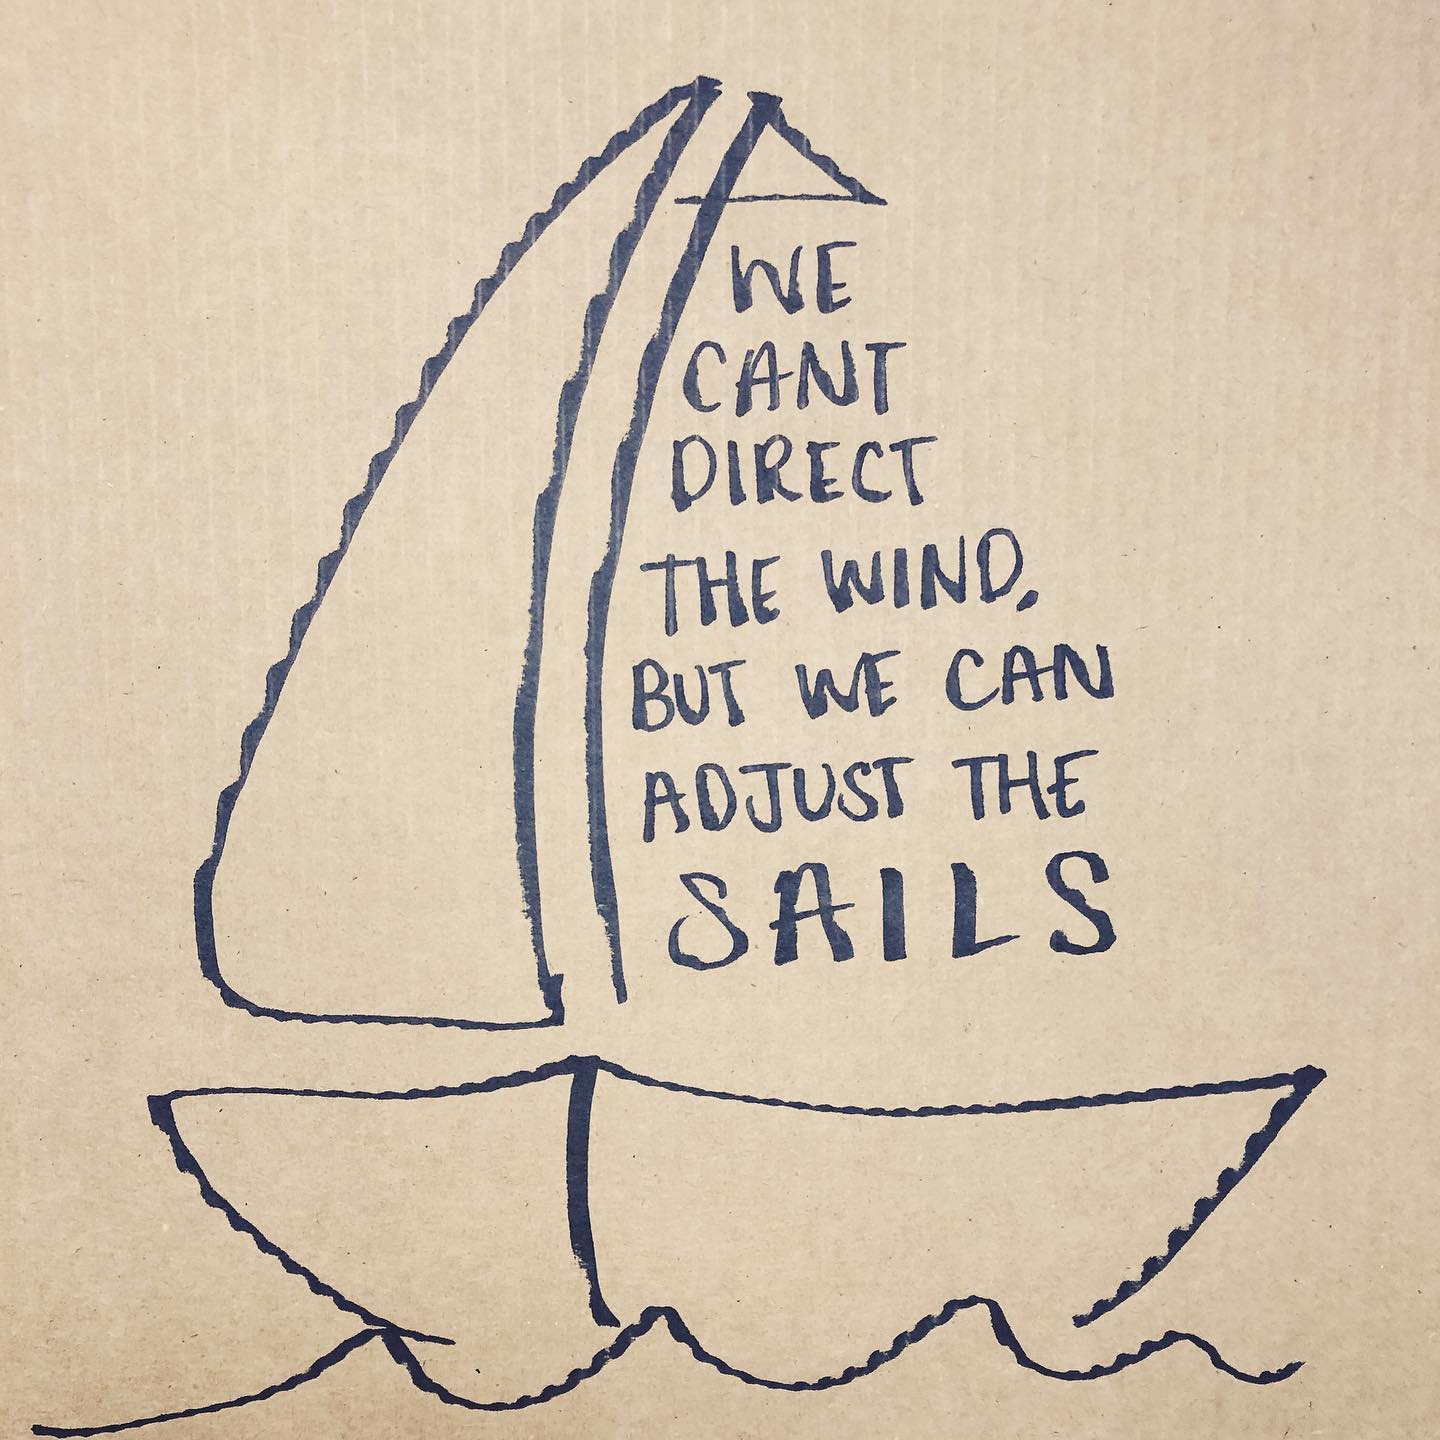 WE
CANT
DIRECT
THE WIND,
BUT WE CAN
ADJUST THE
SAILS